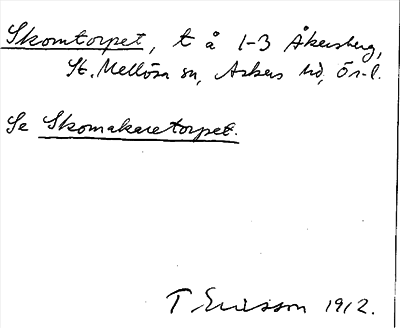 Skomtorpet, t å 1-3 Åkersberg,
St. Mellösa sn, Askers hd, Ör-l.
Se Skomakaretorpet.
T Ericsson 1912.